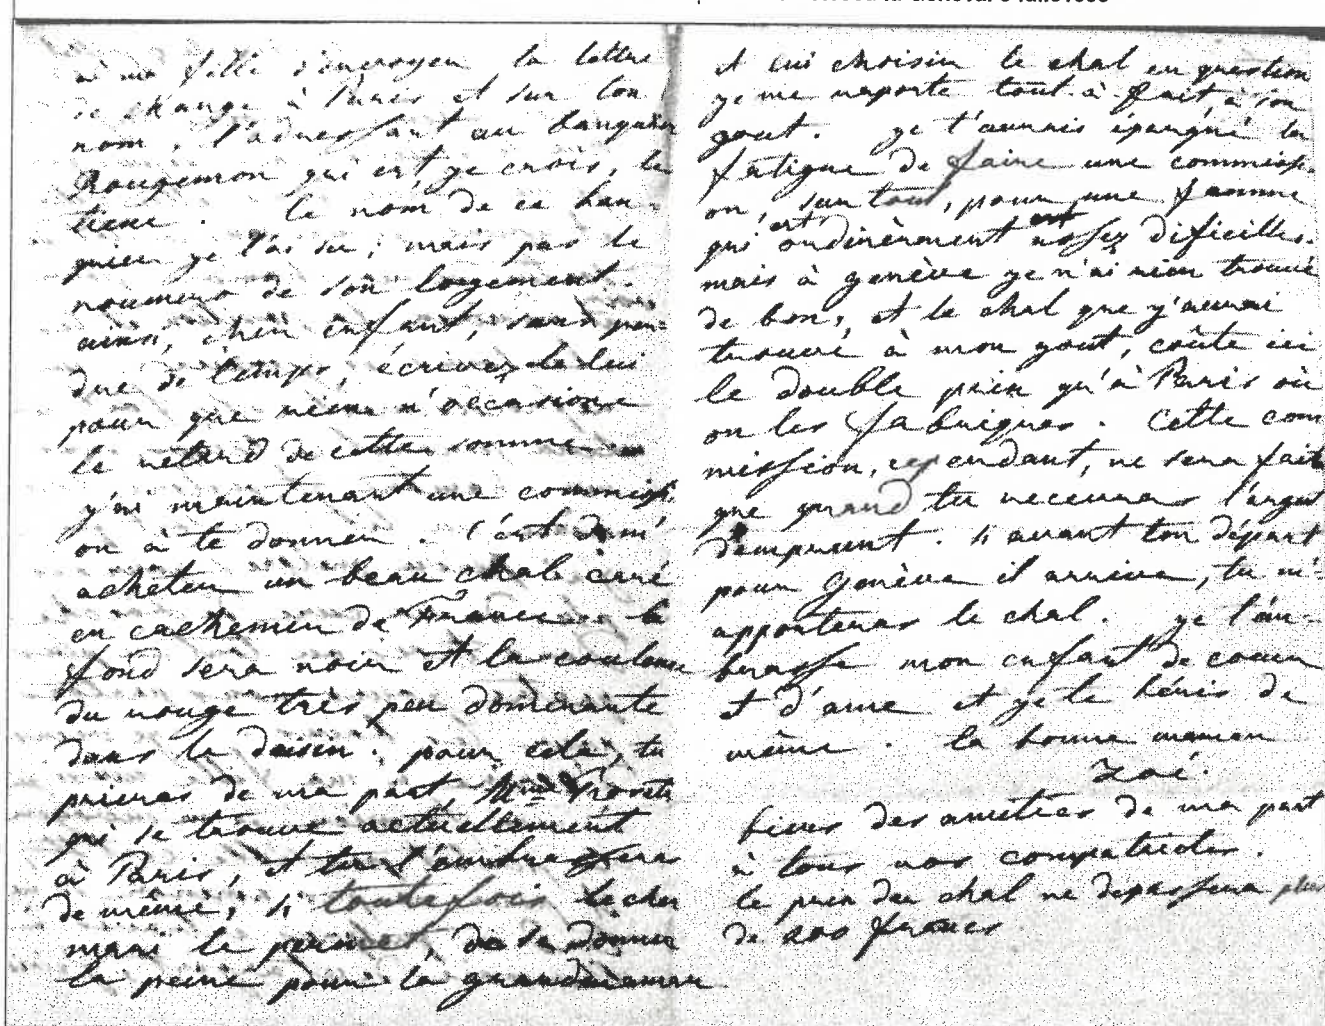 à ma fille d'envoyer la lettre
de change à Paris et sur ton
nom, l'adressant au banquier
Rougemon qui est, ye crois, le
tiene. le nom de ce ban-
quier ye l'ai su; mais pas le
noumero de son logement.
ainsi, cher enfant, sans per-
dre de temps, écrivez le lui
pour que rien n'occasione
le retard de cette somme.
y'ai maintenant une commissi-
on à te donner. C'est de m'
acheter un beau chal caré
en cachemir de France. le
fond sera noir et la couleur
du rouge très peu dominante
dans le dessin. pour cela, tu
prieras de ma part Mme
qui se trouve actuellement
à Paris, et tu l'embrasseras
de même, si toutefois le cher
mari le permet, de se donner
la peine pour la grandmaman
et lui choisir le chal en question
ye me raporte tout à fait, à son
gout. ye t'aurais épargné la
fatigue de faire une commissi-
on, sur tout, pour une famme
qui est ordinèrement assez dificille.
mais à genève ye n'ai rien trouvé
de bon, et le chal que y'aurai
trouvé à mon gout, coûte ici
le double prix qu'à Paris où
on les fabriques. Cette com
mission, cependant, ne sera fait
que quand tu receveras l'argent
d'emprunt. si avant ton départ
pour Genève il arrive, tu m'
apporteras le chal. ye t'am-
brasse mon enfant de coeur
et d'ame et ye te bénis de
même. ta bonne maman
Zoé.
bien des amitiés de ma part
à tous nos compatriotes.
le prix du chal ne dépassera plus
de 200 francs